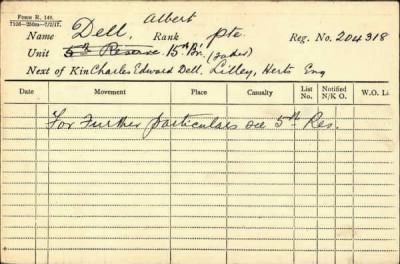 Form R. 149.
7106—250m—7/2/17.
Albert
Name Dell, Rank pte. Reg. No. 204318
Unit 5th Reserve 15th Bn.
Next of Kin Charles Edward Dell. Lilley, Herts Eng
Date Movement Place Casualty List No. Notified N/K O. W.O. Li
For Further particulars see 5th Res.